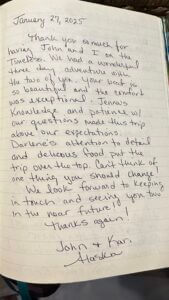 January 27, 2025
Thank you so much for
having John and I on the
Twelfoo. We had a wonderful
three day adventure with
the two of you. Your boat is
so beautiful and the comfort
was exceptional. Jenna's
knowledge and patience w/
our questions made this trip
above our expectations.
Darlene's attention to detail
and delicious food put the
trip over the top. Can't think of
one thing you should change!
We look forward to keeping
in touch and seeing you two
in the near future!
Thanks again!
John & Kari
Alaska